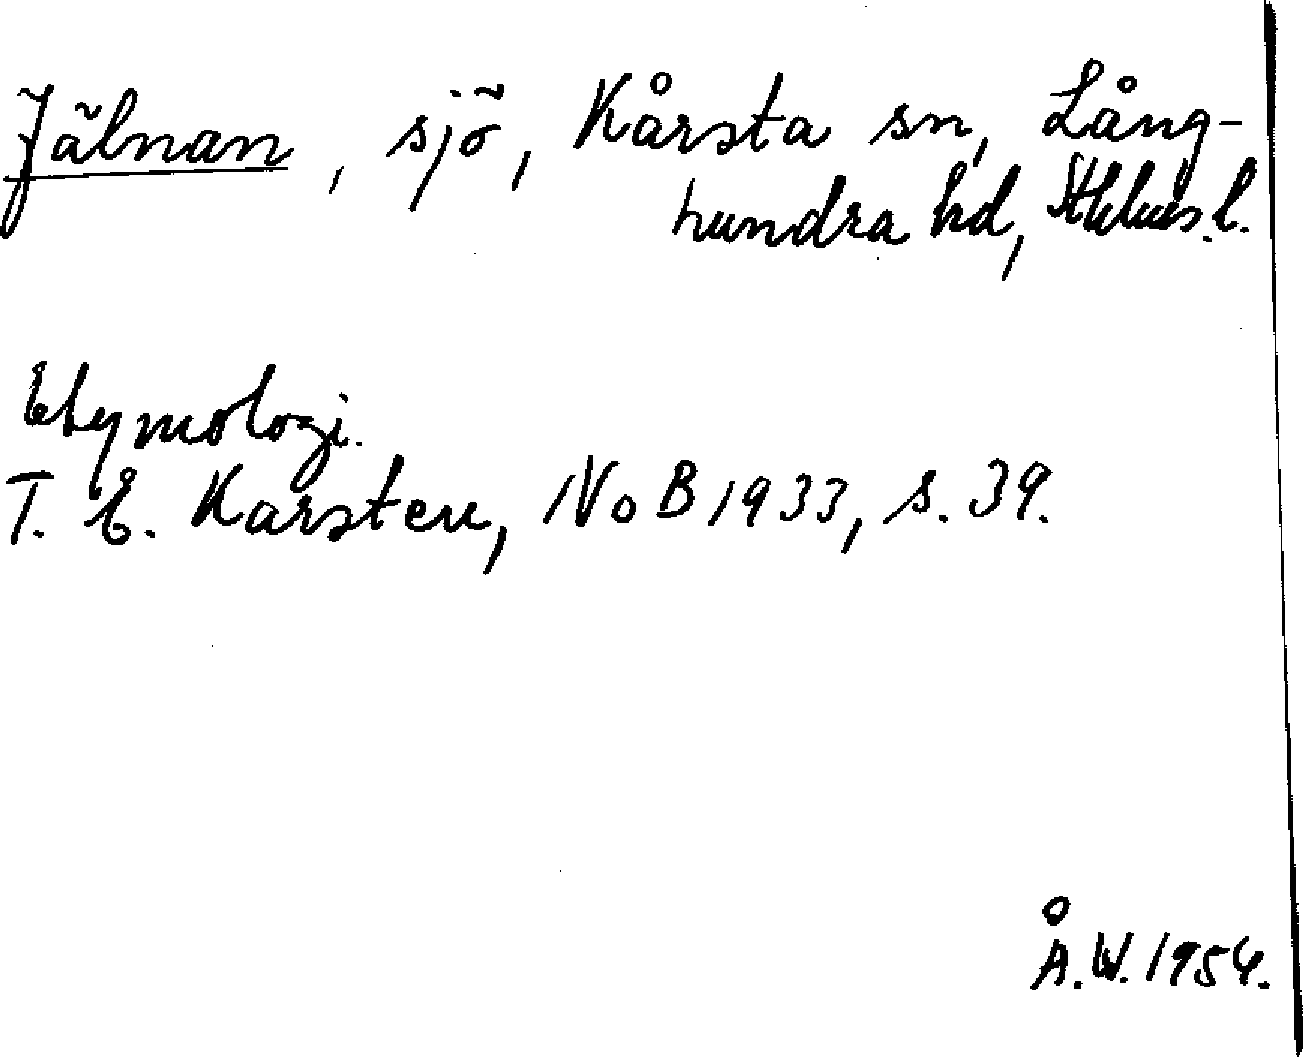 Jälnan, sjö, Kårsta sn, Lång-
hundra hd, Sthlms. l.
Etymologi.
T. E. Karsten, NoB 1933, s. 39.
Å. W. 1954.